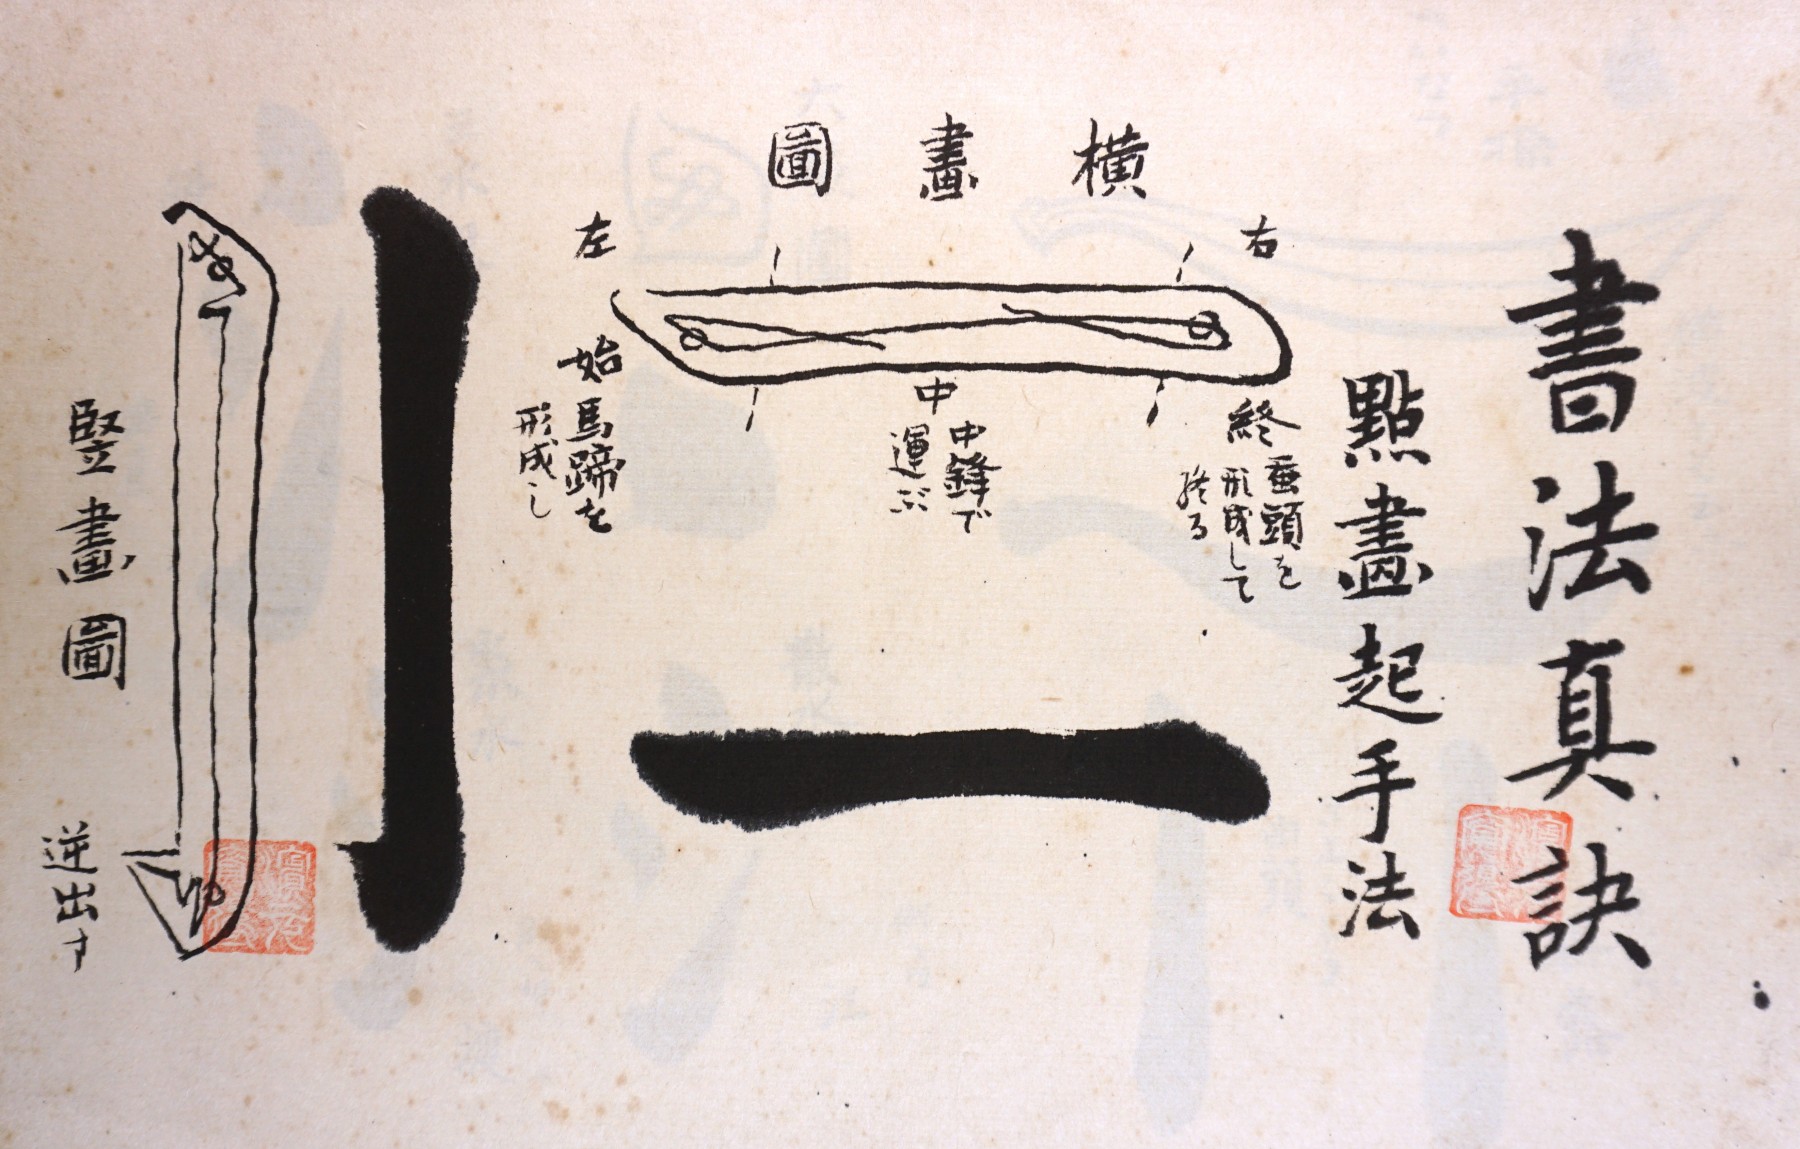 書法真訣
點畫起手法
橫畫圖
右
左
終
蚕頭を
形成して
終る
中
中鋒で
運ぶ
始
馬蹄を
形成し
竪畫圖
逆出す